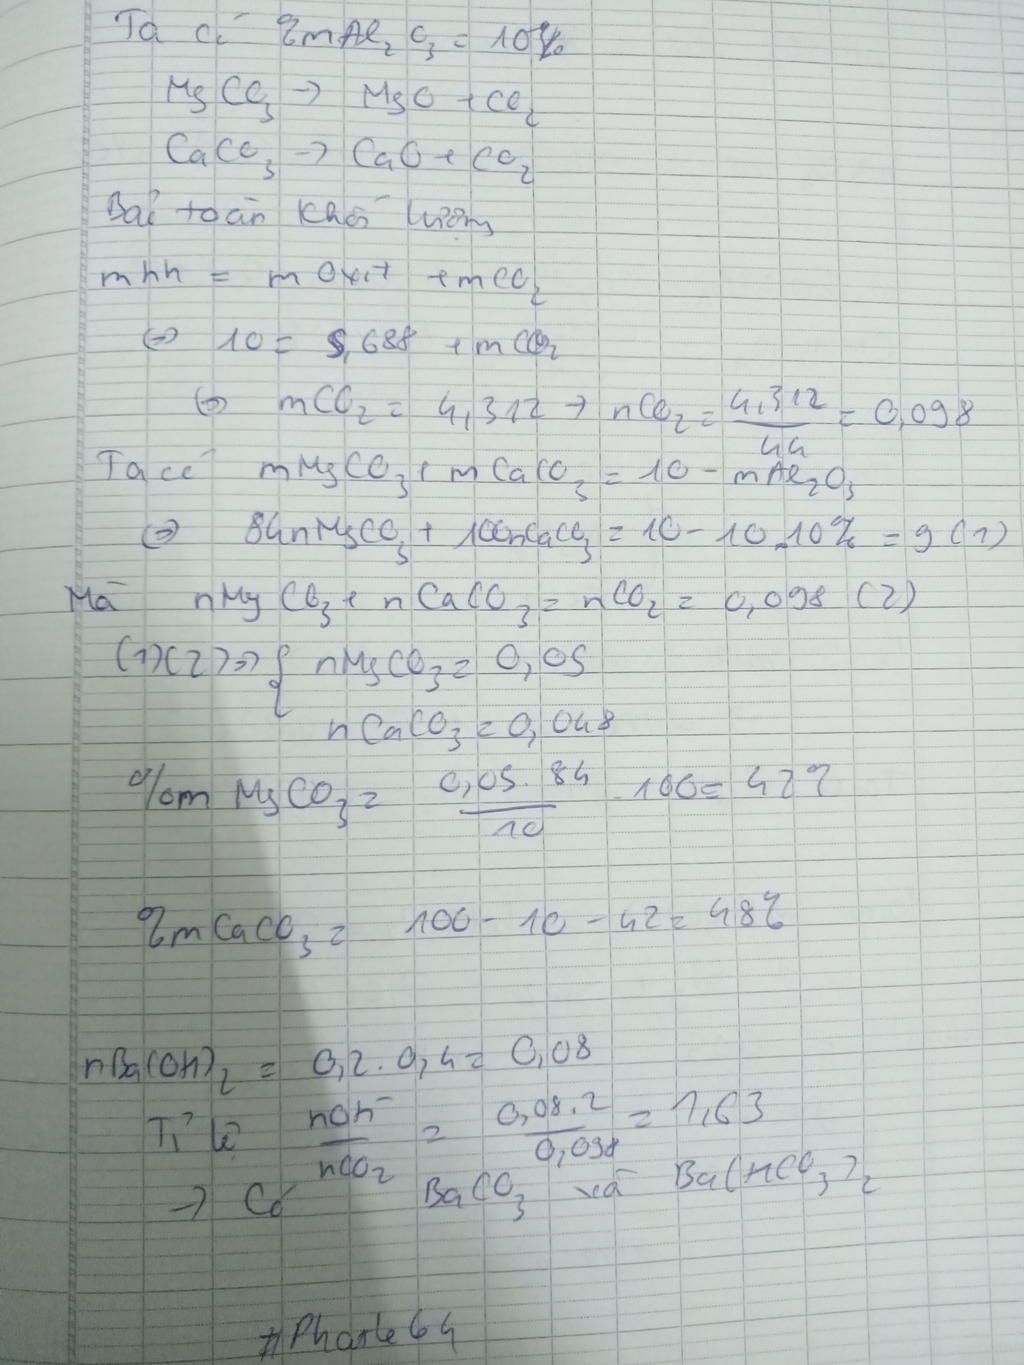 Ta có %mAl2O3 = 10%
MgCO3 → MgO + CO2
CaCO3 → CaO + CO2
Bải toàn khối lượng
mhh = m Oxit + mCO2
⇔ 10 = 5,688 + mCO2
⇔ mCO2 = 4,312 → nCO2 = 4,312/44 = 0,098
Ta có mMgCO3 + mCaCO3 = 10 - mAl2O3
⇔ 84nMgCO3 + 100nCaCO3 = 10 - 10.10% = 9 (1)
Mà nMgCO3 + nCaCO3 = nCO2 = 0,098 (2)
(1)(2) ⇒ { nMgCO3 = 0,05
nCaCO3 = 0,048
%m MgCO3 = 0,05.84/10 .100 = 42%
%mCaCO3 = 100 - 10 - 42 = 48%
nBa(OH)2 = 0,2.0,4 = 0,08
Tỉ lệ nOH-/nCO2 = 0,08.2/0,098 = 1,63
→ Có BaCO3 và Ba(HCO3)2